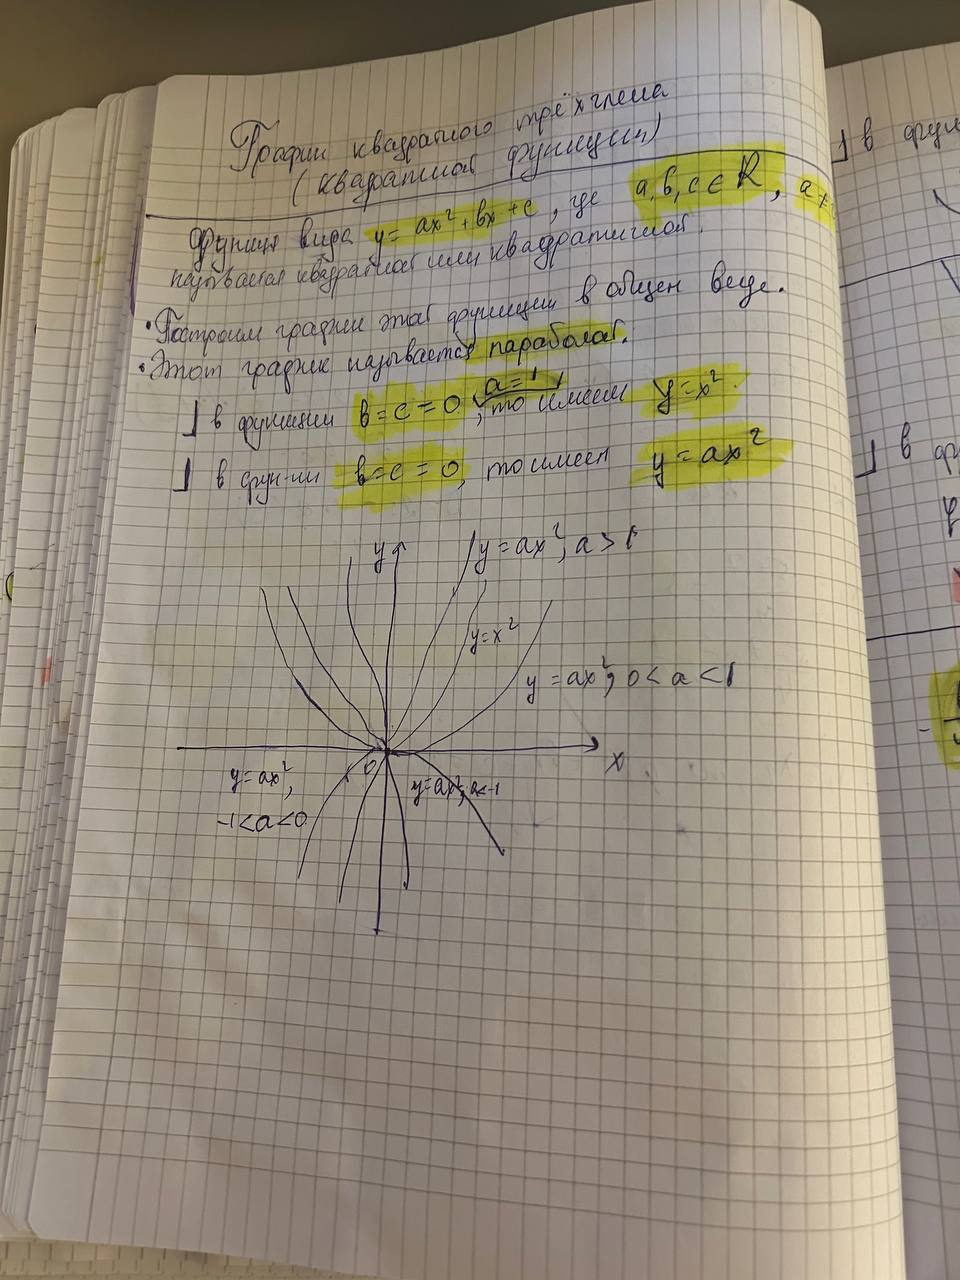 График квадратного трёхчлена
(квадратной функции)
Функция вида y = ax² + bx + c, где a, b, c ∈ R, a ≠
называется квадратной или квадратичной.
• Построим график этой функции в общем виде.
• Этот график называется параболой.
] в функции b = c = 0, a = 1, то имеем y = x².
] в функ-ии b = c = 0, то имеем y = ax²
y
y = ax², a > 1
y = x²
y = ax², 0 < a < 1
0
x
y = ax²,
-1 < a < 0
y = ax², a < -1
] в функ
] в фу